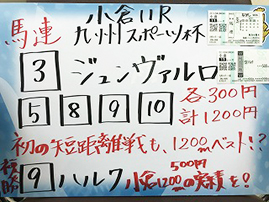 馬連 小倉11R
九州スポーツ杯
3 ジュンヴァルロ
5 8 9 10 各300円
計1200円
初の短距離戦も、1200mベスト!?
複勝 9 ハルク 小倉1200の実績を!
500円